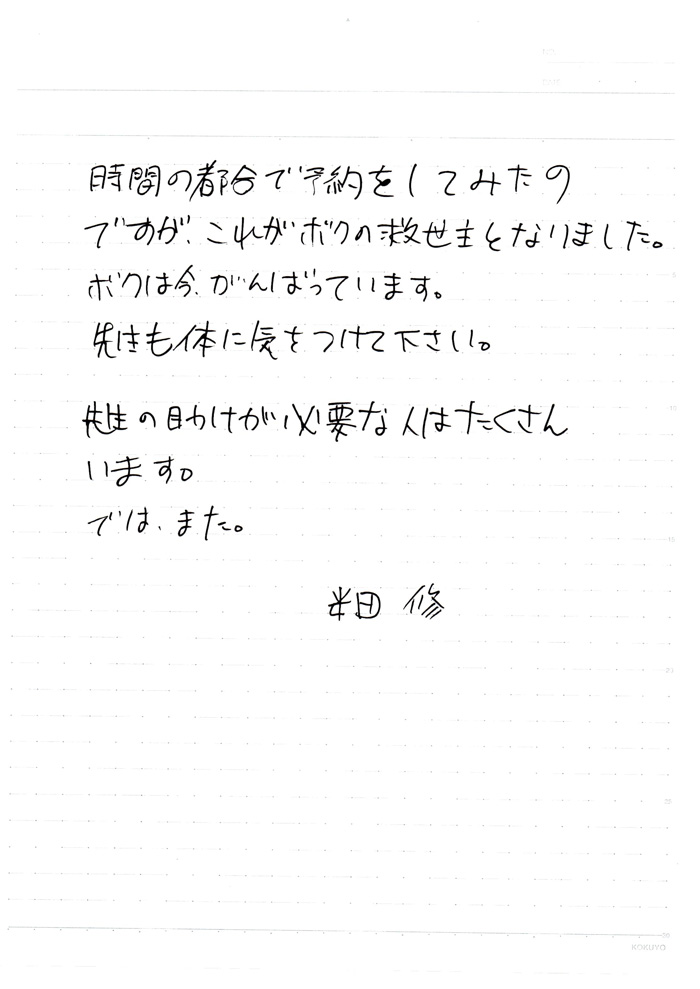 時間の都合で予約をしてみたの
ですが、これがボクの救世主となりました。
ボクは今、がんばっています。
先生も体に気をつけて下さい。
先生の助けが必要な人はたくさん
います。
では、また。
米田 修
KOKUYO